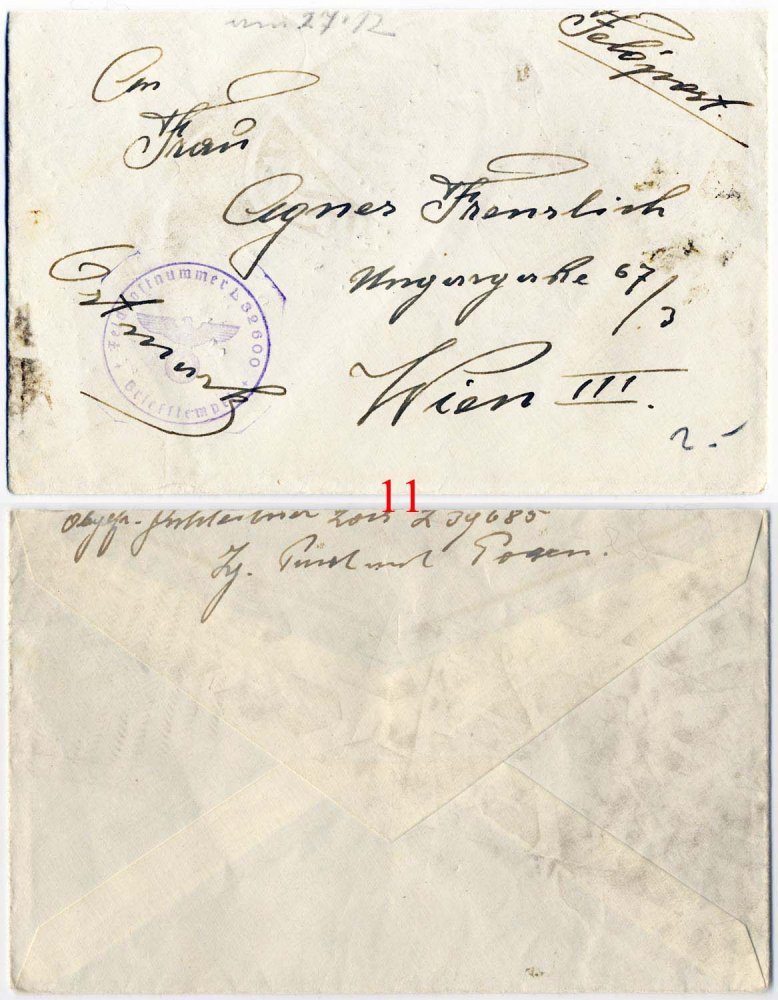 27.12
Feldpost.
An
Frau
Agnes Frenslich
Ungargasse 67/3
Ostmark
Wien III.
Feldpostnummer L 32600
Briefstempel
2.-
11
Obgefr. L 39685